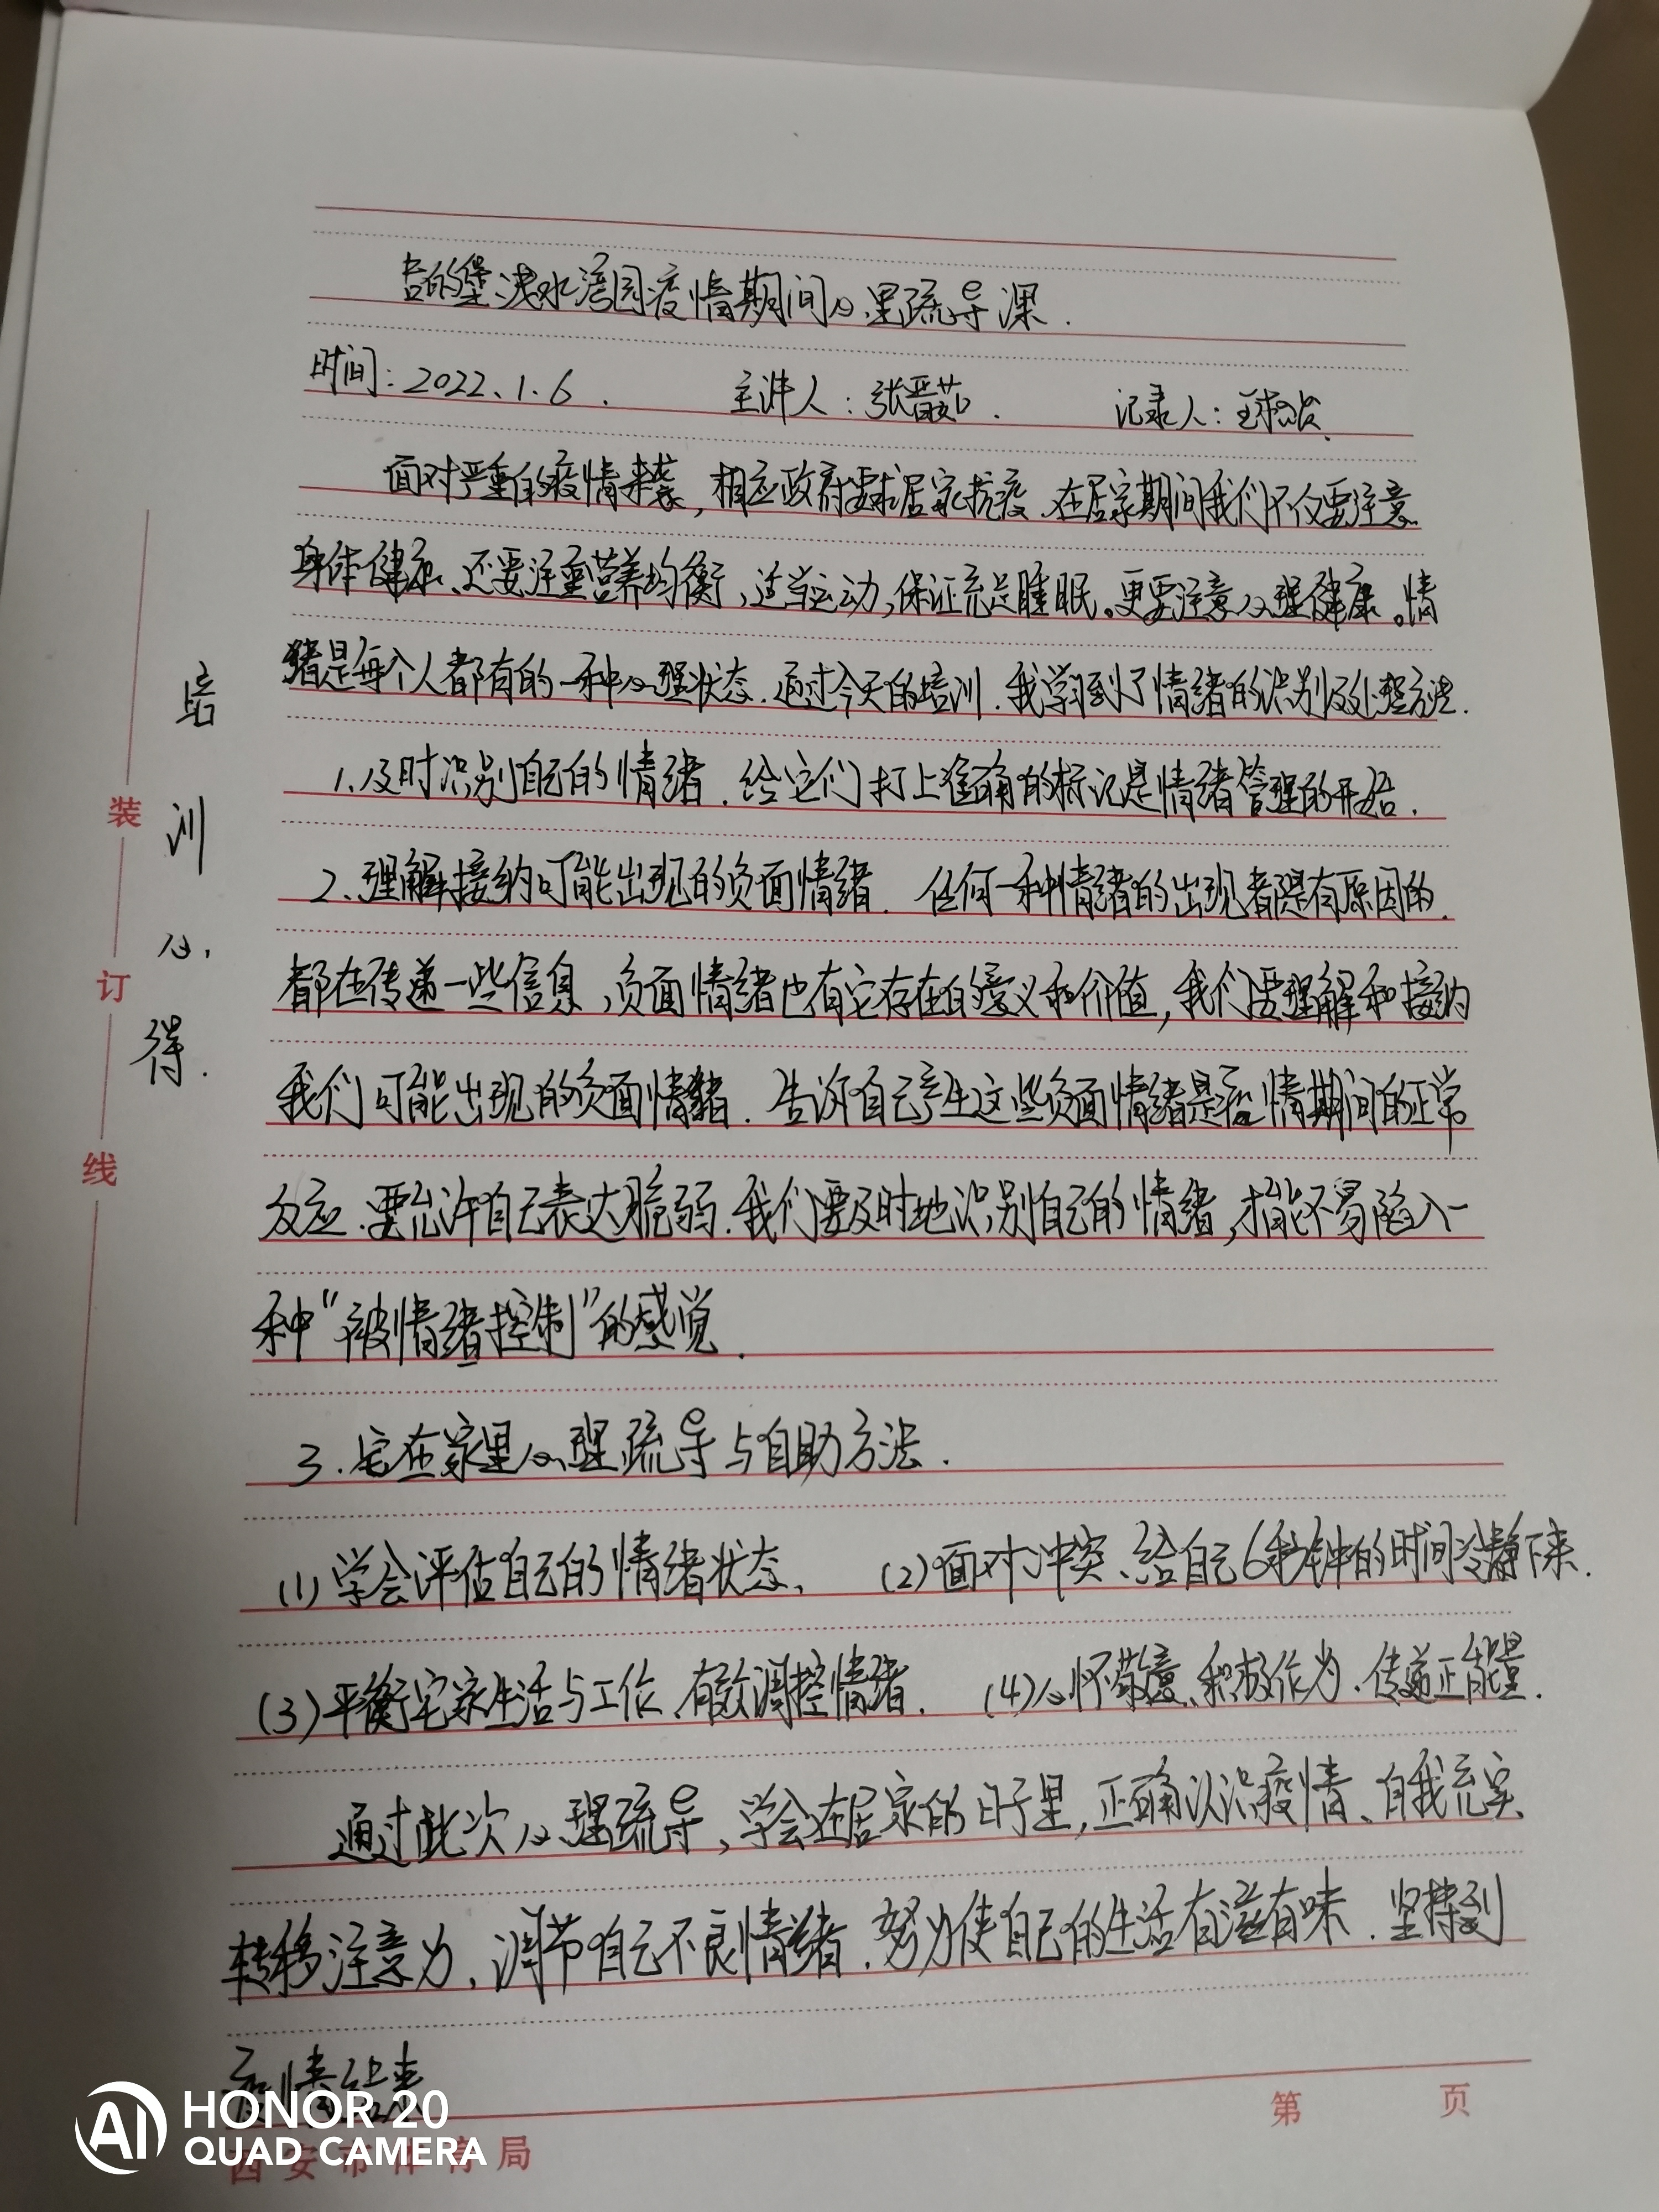 吉的堡浅水湾园疫情期间心里疏导课.
时间:2022.1.6. 主讲人:张晋茹. 记录人:
面对严重的疫情来袭,相应政府要求居家抗疫.在居家期间我们不仅要注意
身体健康、还要注重营养均衡,适当运动,保证充足睡眠。更要注意心理健康。情
绪是每个人都有的一种心理状态.通过今天的培训.我学习到了情绪的识别及处理方法.
1.及时识别自己的情绪.给它们打上准确的标记是情绪管理的开始.
2、理解接纳可能出现的负面情绪. 任何一种情绪的出现都是有原因的.
都在传递一些信息,负面情绪也有它存在的意义和价值,我们要理解和接纳
我们可能出现的负面情绪.告诉自己产生这些负面情绪是疫情期间的正常
反应.要允许自己表达脆弱.我们要及时地识别自己的情绪,才能不易陷入一
种“被情绪控制”的感觉.
3.宅在家里心理疏导与自助方法.
(1)学会评估自己的情绪状态、 (2)面对冲突、给自己6秒钟的时间冷静下来.
(3)平衡宅家生活与工作、有效调控情绪. (4)心怀敬意、积极作为.传递正能量.
通过此次心理疏导,学会在居家的日子里,正确认识疫情、自我充实
转移注意力,调节自己不良情绪.努力使自己的生活有滋有味.坚持到
疫情结束
培训心得.
装订线
第 页
西安市体育局
AI HONOR 20
QUAD CAMERA